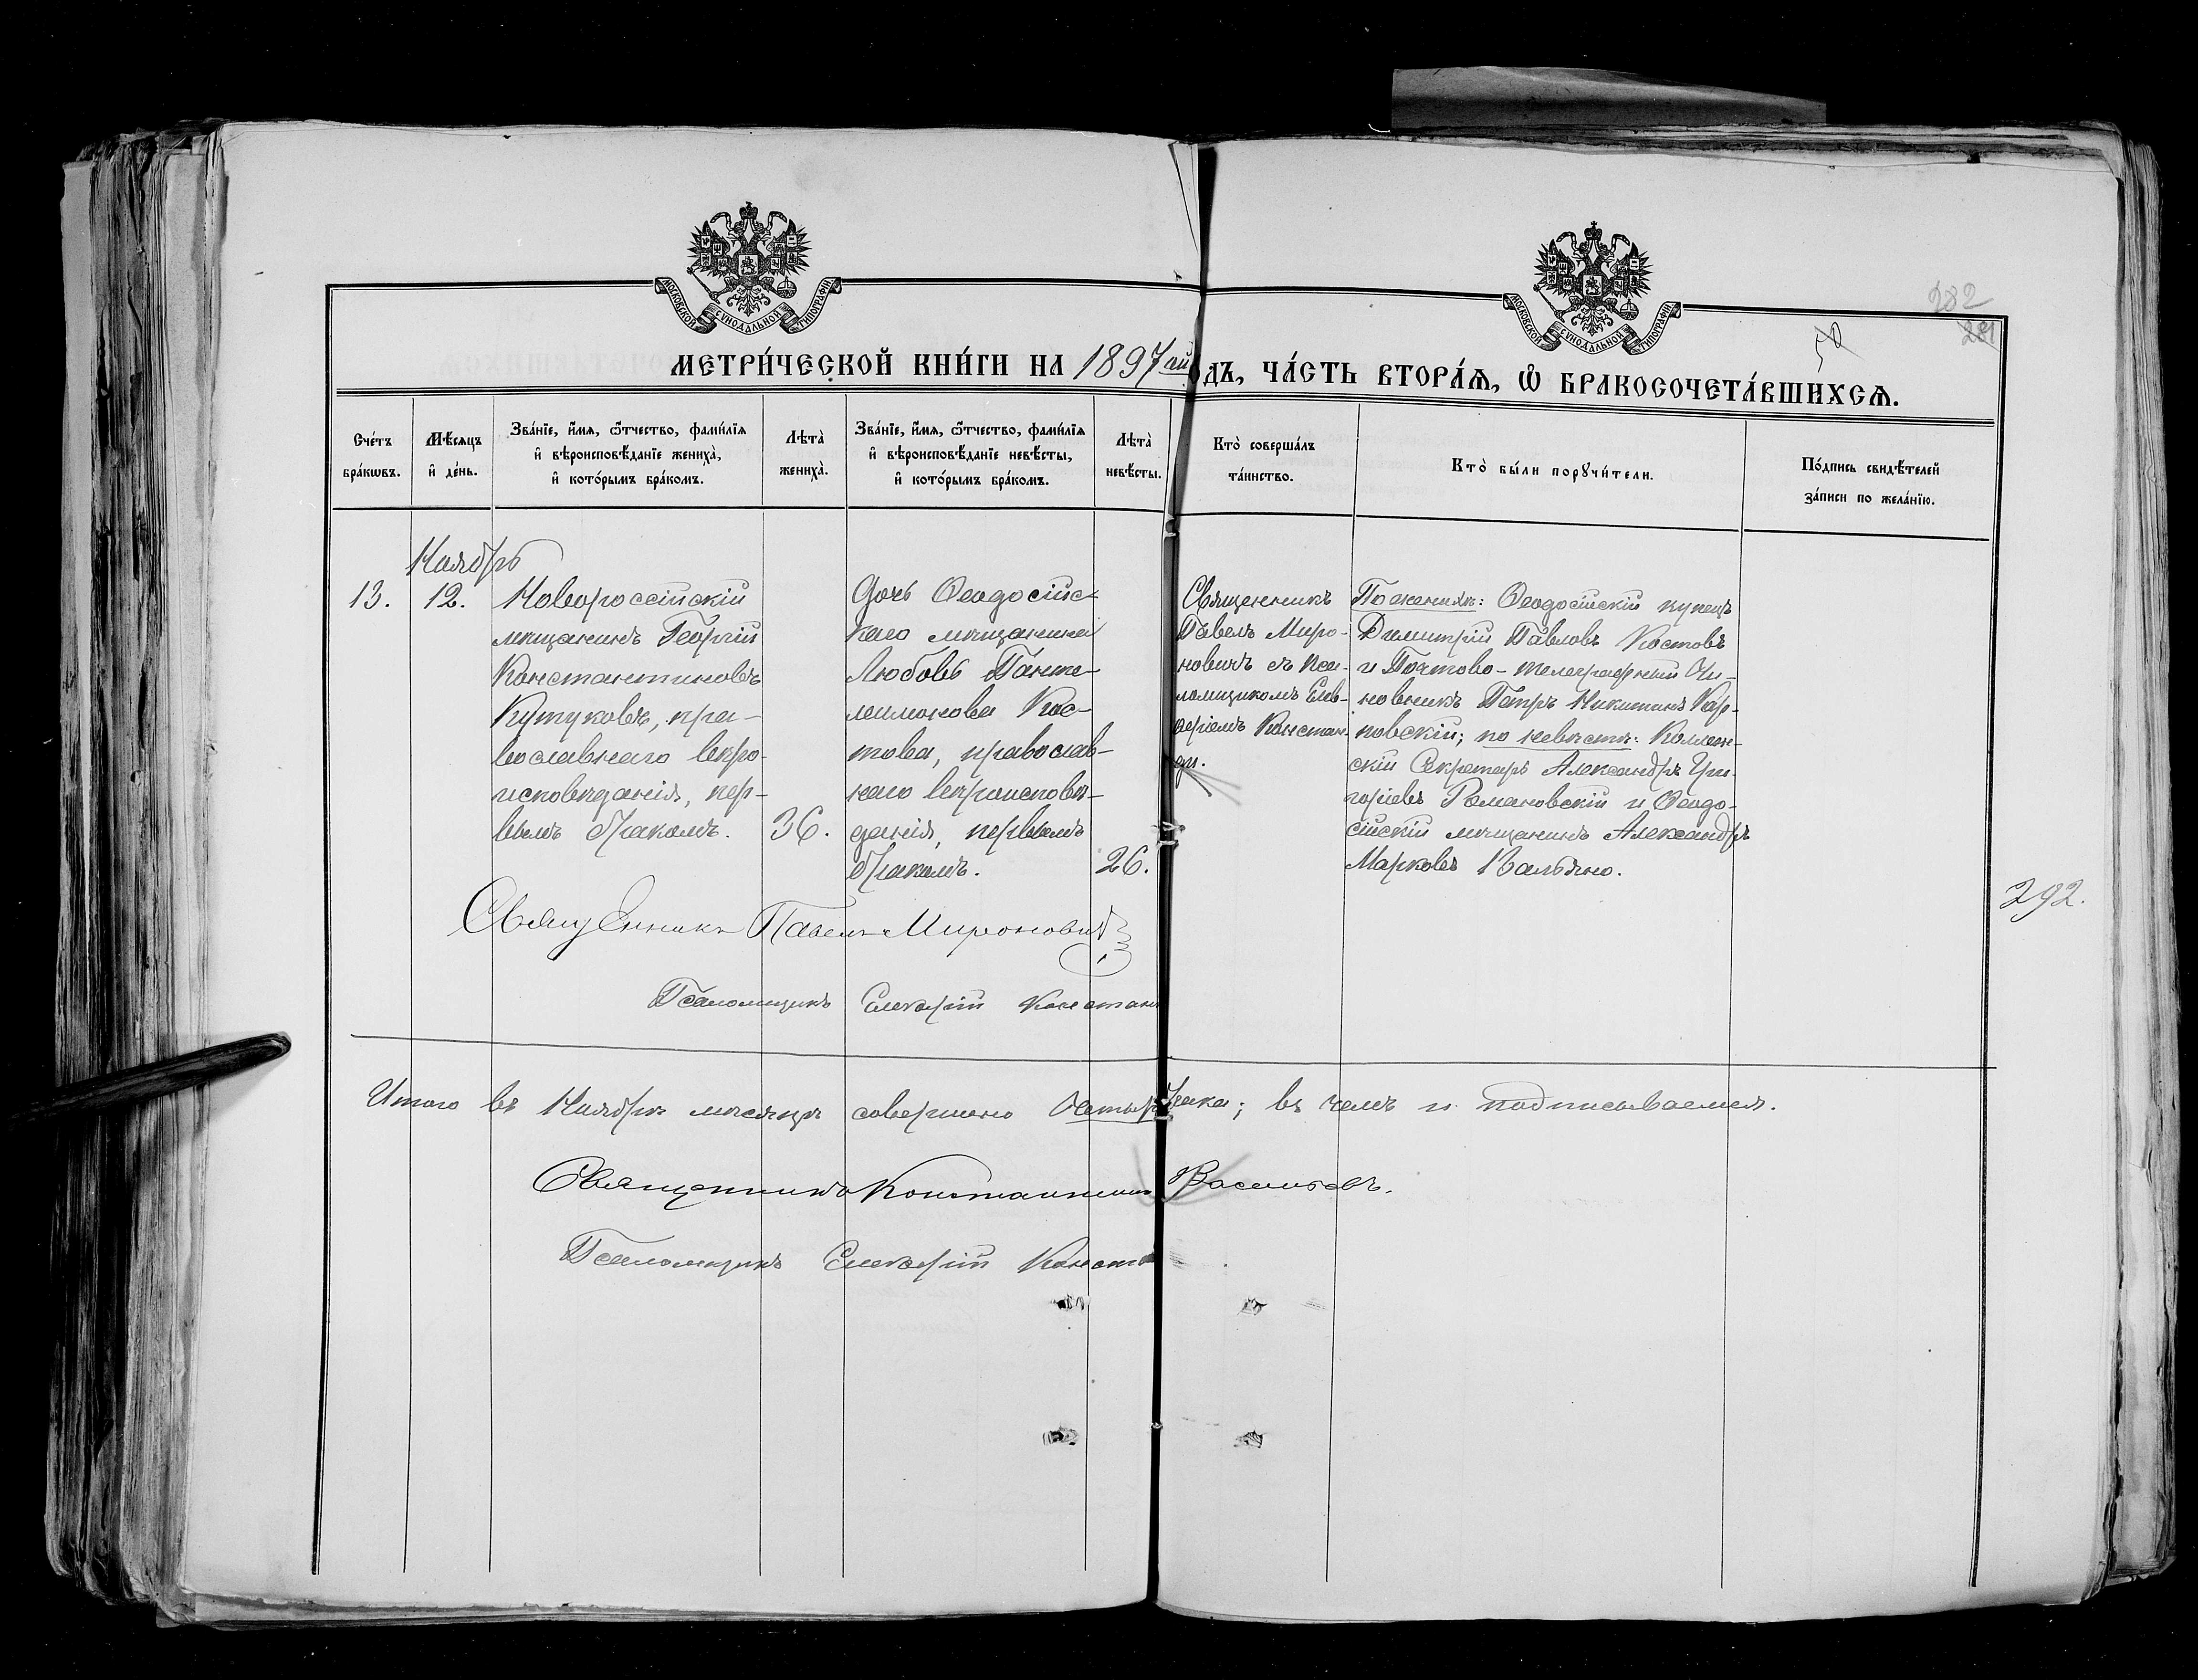 МОСКОВСКОЙ СУНОДАЛЬНОЙ ТИПОГРАФІИ
МОСКОВСКОЙ СУНОДАЛЬНОЙ ТИПОГРАФІИ
282
281
50
МЕТРИ́ЧЕСКОЙ КНИ́ГИ НА 1897ый
ОДЪ, ЧА́СТЬ ВТОРА́Ѧ, Ѽ БРАКОСОЧЕТА́ВШИХСѦ.
Сче́тъ бра́кѡвъ.
Мѣ́сяцъ и҆ де́нь.
Зва́нїе, и҆́мѧ, ѻ҆́тчество, фами́лїѧ и҆ вѣроисповѣ́данїе жениха̀, и҆ кото́рымъ бра́комъ.
Лѣта̀ жениха̀.
Зва́нїе, и҆́мѧ, ѻ҆́тчество, фами́лїѧ и҆ вѣроисповѣ́данїе невѣ́сты, и҆ кото́рымъ бра́комъ.
Лѣта̀ невѣ́сты.
Кто̀ соверша́лъ та́инство.
Кто̀ бы́ли порꙋчи́тели.
По́дпись свидѣ́телей за́писи по жела́нїю.
Ноябрь
13.
12.
Новороссійскій
мѣщанинъ Георгій
Константиновъ
Кутуковъ, пра-
вославнаго веро-
исповѣданія, пер-
вымъ бракомъ.
36.
Дочь Ѳеодосійс-
каго мѣщанина
Любовь Панте-
леимонова Кос-
това, православ-
наго вероисповѣ-
данія, первымъ
бракомъ.
26.
Священникъ
Павелъ Миро-
новичъ съ пса-
ломщикомъ Елев-
ѳеріемъ Констан-
ди.
По жениху: Ѳеодосійскій купецъ
Димитрій Павловъ Костовъ
и Почтово-телеграфный Чи-
новникъ Петръ Никитинъ Кар-
повскій; по невѣсте: Коллеж-
скій Секретарь Александръ Гри-
горіевъ Романовскій и Ѳеодо-
сійскій мѣщанинъ Александръ
Марковъ Кальяно.
292.
Священникъ Павелъ Мироновичъ
Псаломщикъ Елевѳерій Констан
Итого въ Ноябрѣ месяцѣ совершено Четыре
брака; въ чемъ и подписываемся.
Священникъ Константинъ Васильевъ.
Псаломщикъ Елевѳерій Конста